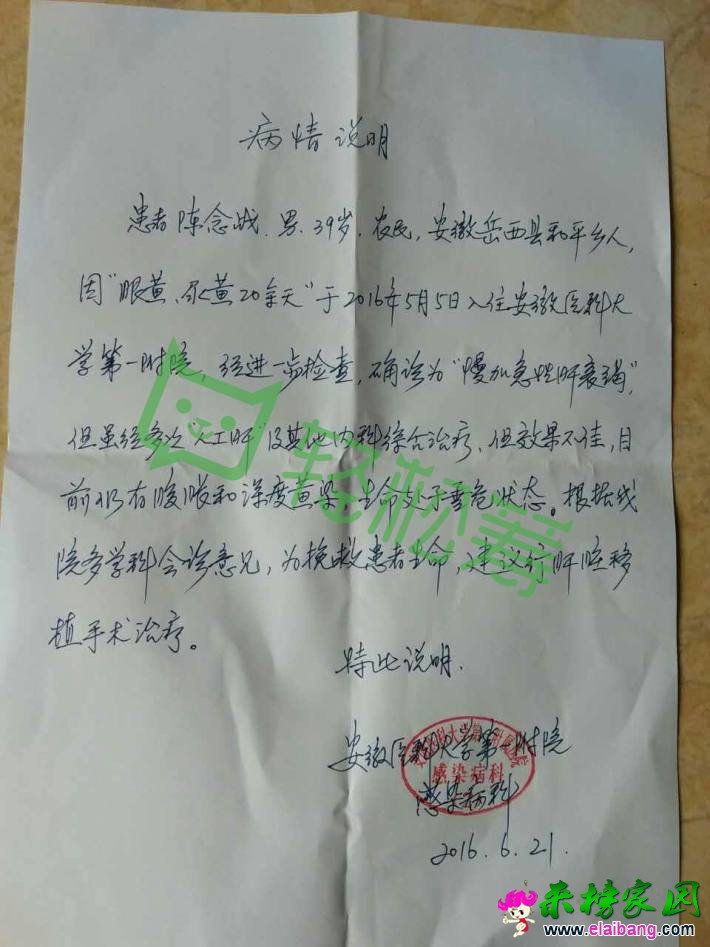 病情说明
患者陈念战,男,39岁,农民,安徽岳西县和平乡人,
因“眼黄、尿黄20余天”于2016年5月5日入住安徽医科大
学第一附院,经进一步检查,确诊为“慢加急性肝衰竭”,
但虽经多次“人工肝”及其他内科综合治疗,但效果不佳,目
前仍有腹胀和深度黄染,生命处于垂危状态。根据我
院多学科会诊意见,为挽救患者生命,建议行肝脏移
植手术治疗。
特此说明.
安徽医科大学第一附院
感染病科
2016.6.21.
感染病科
轻松筹
来榜家园
www.elaibang.com